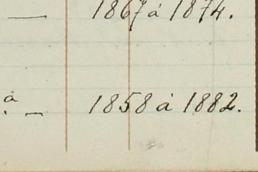 — 1867 à 1874.
a. — 1858 à 1882.